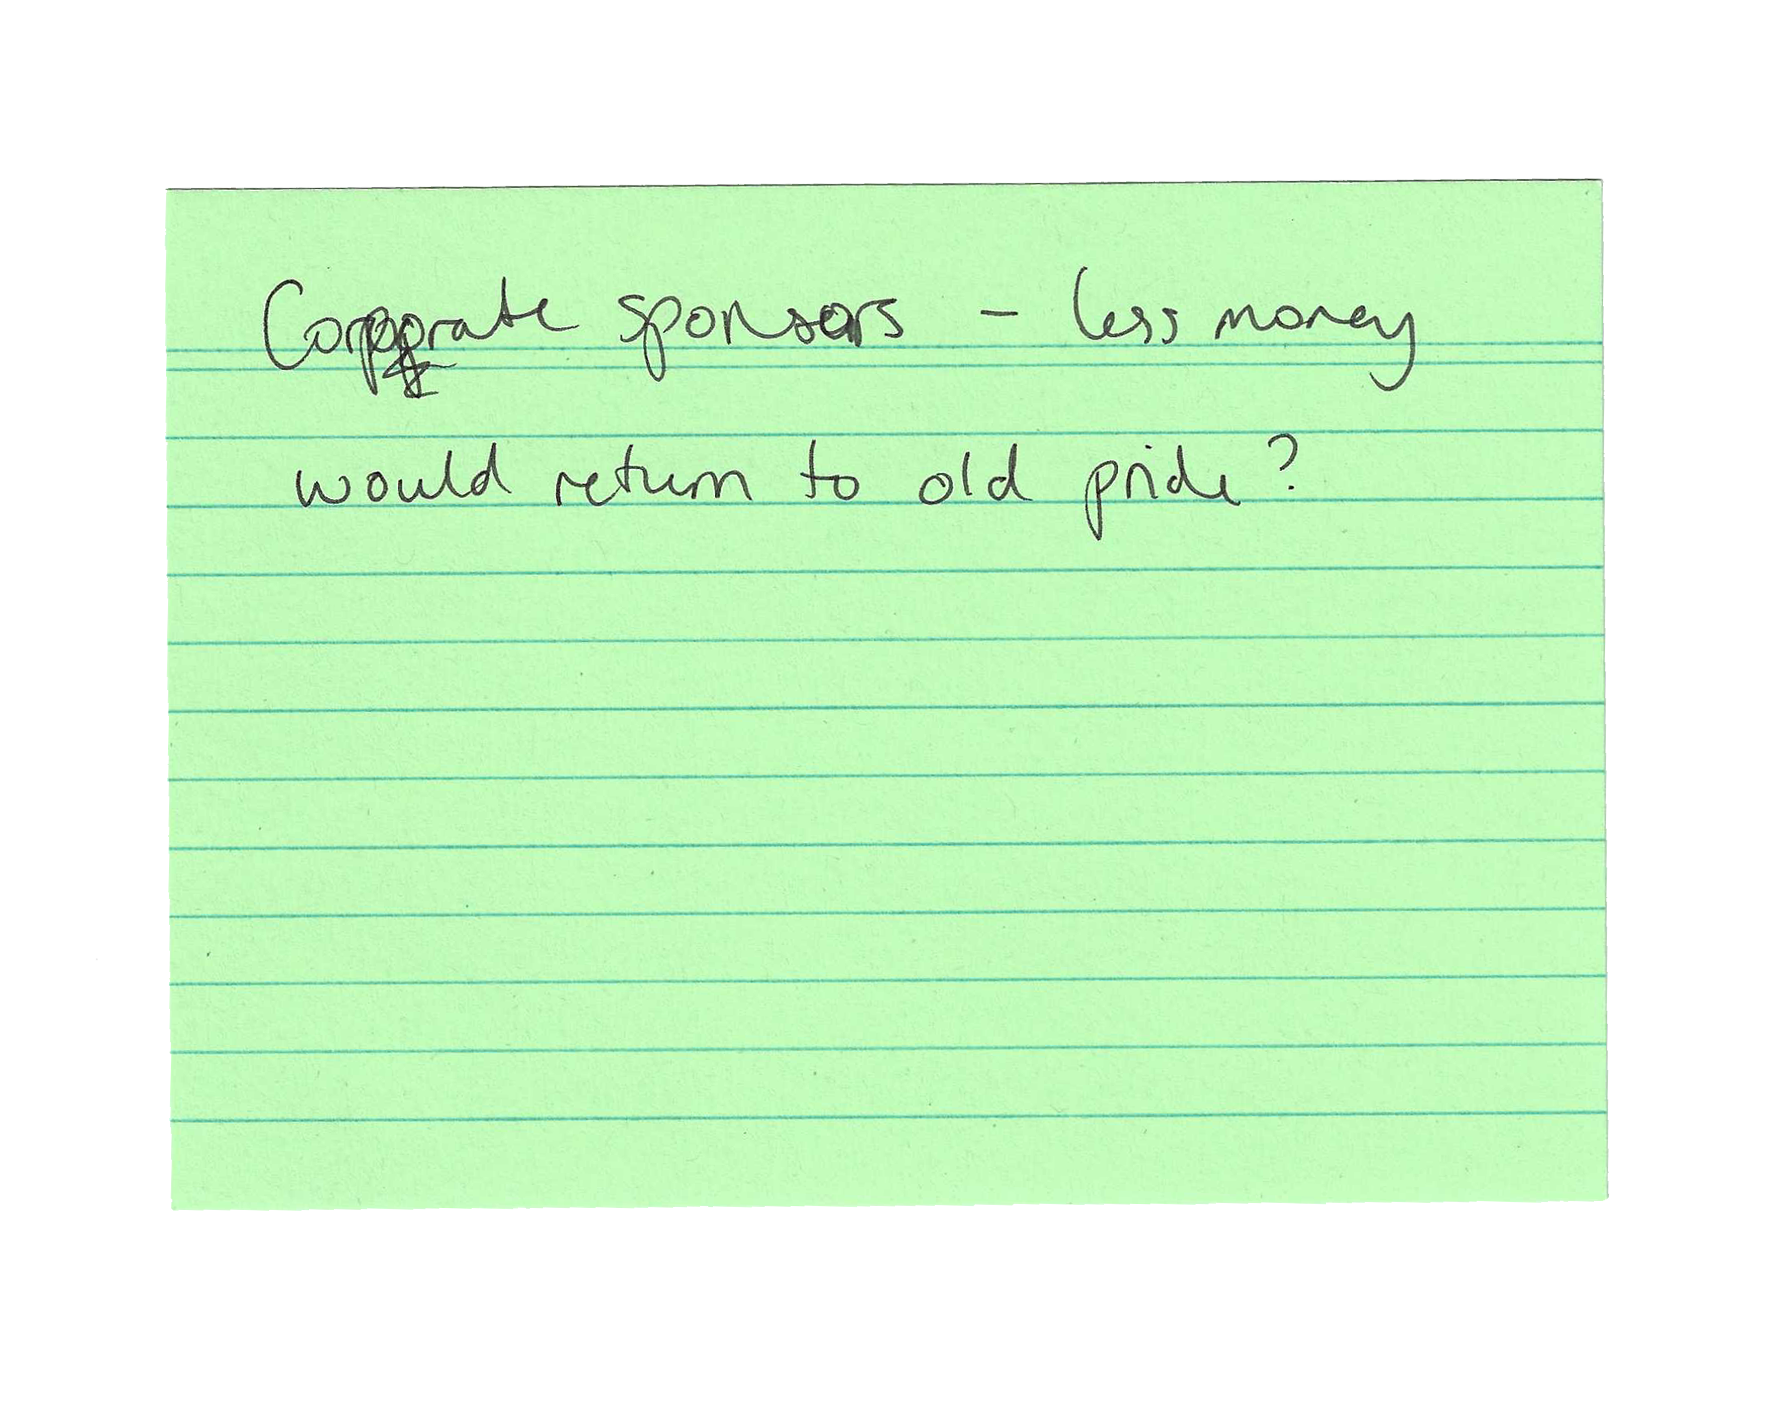 Corporate sponsors - less money
would return to old pride?